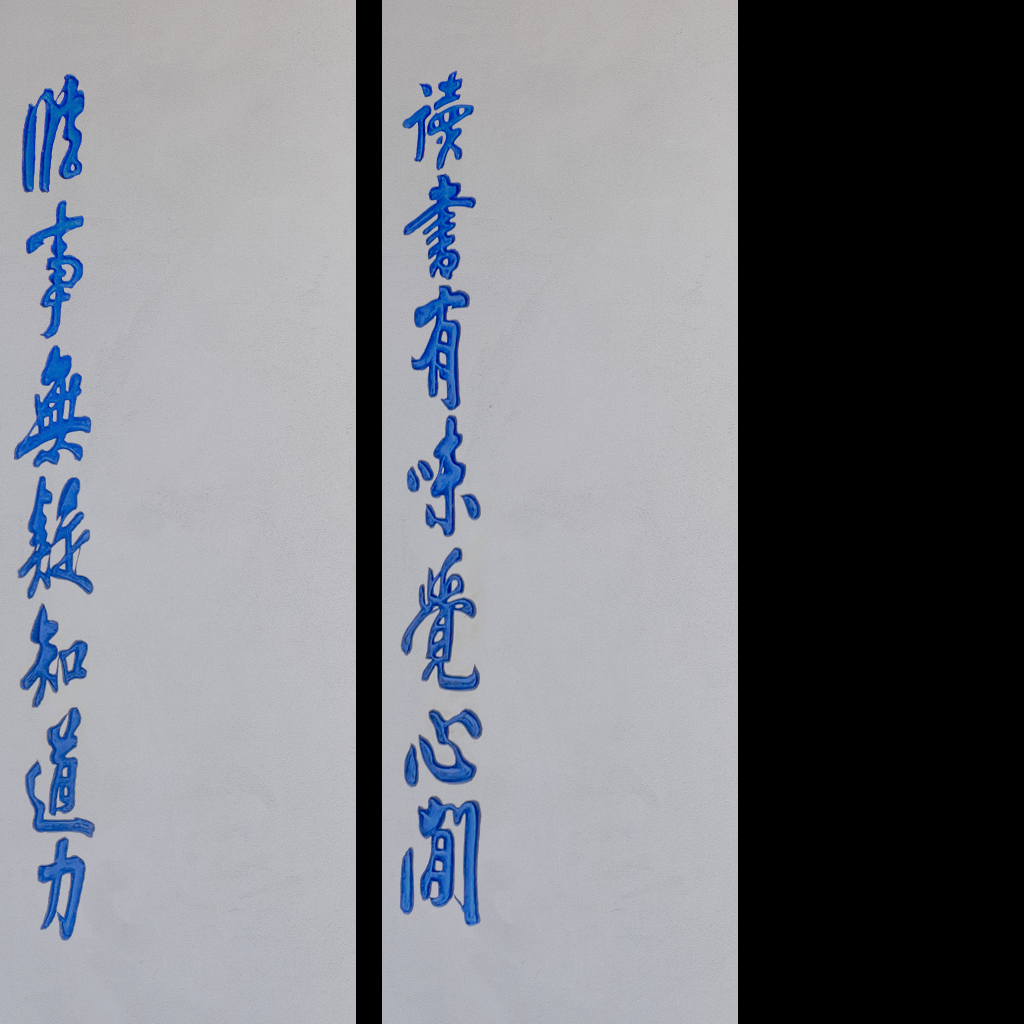 臨事無疑知道力
读書有味覺心閒